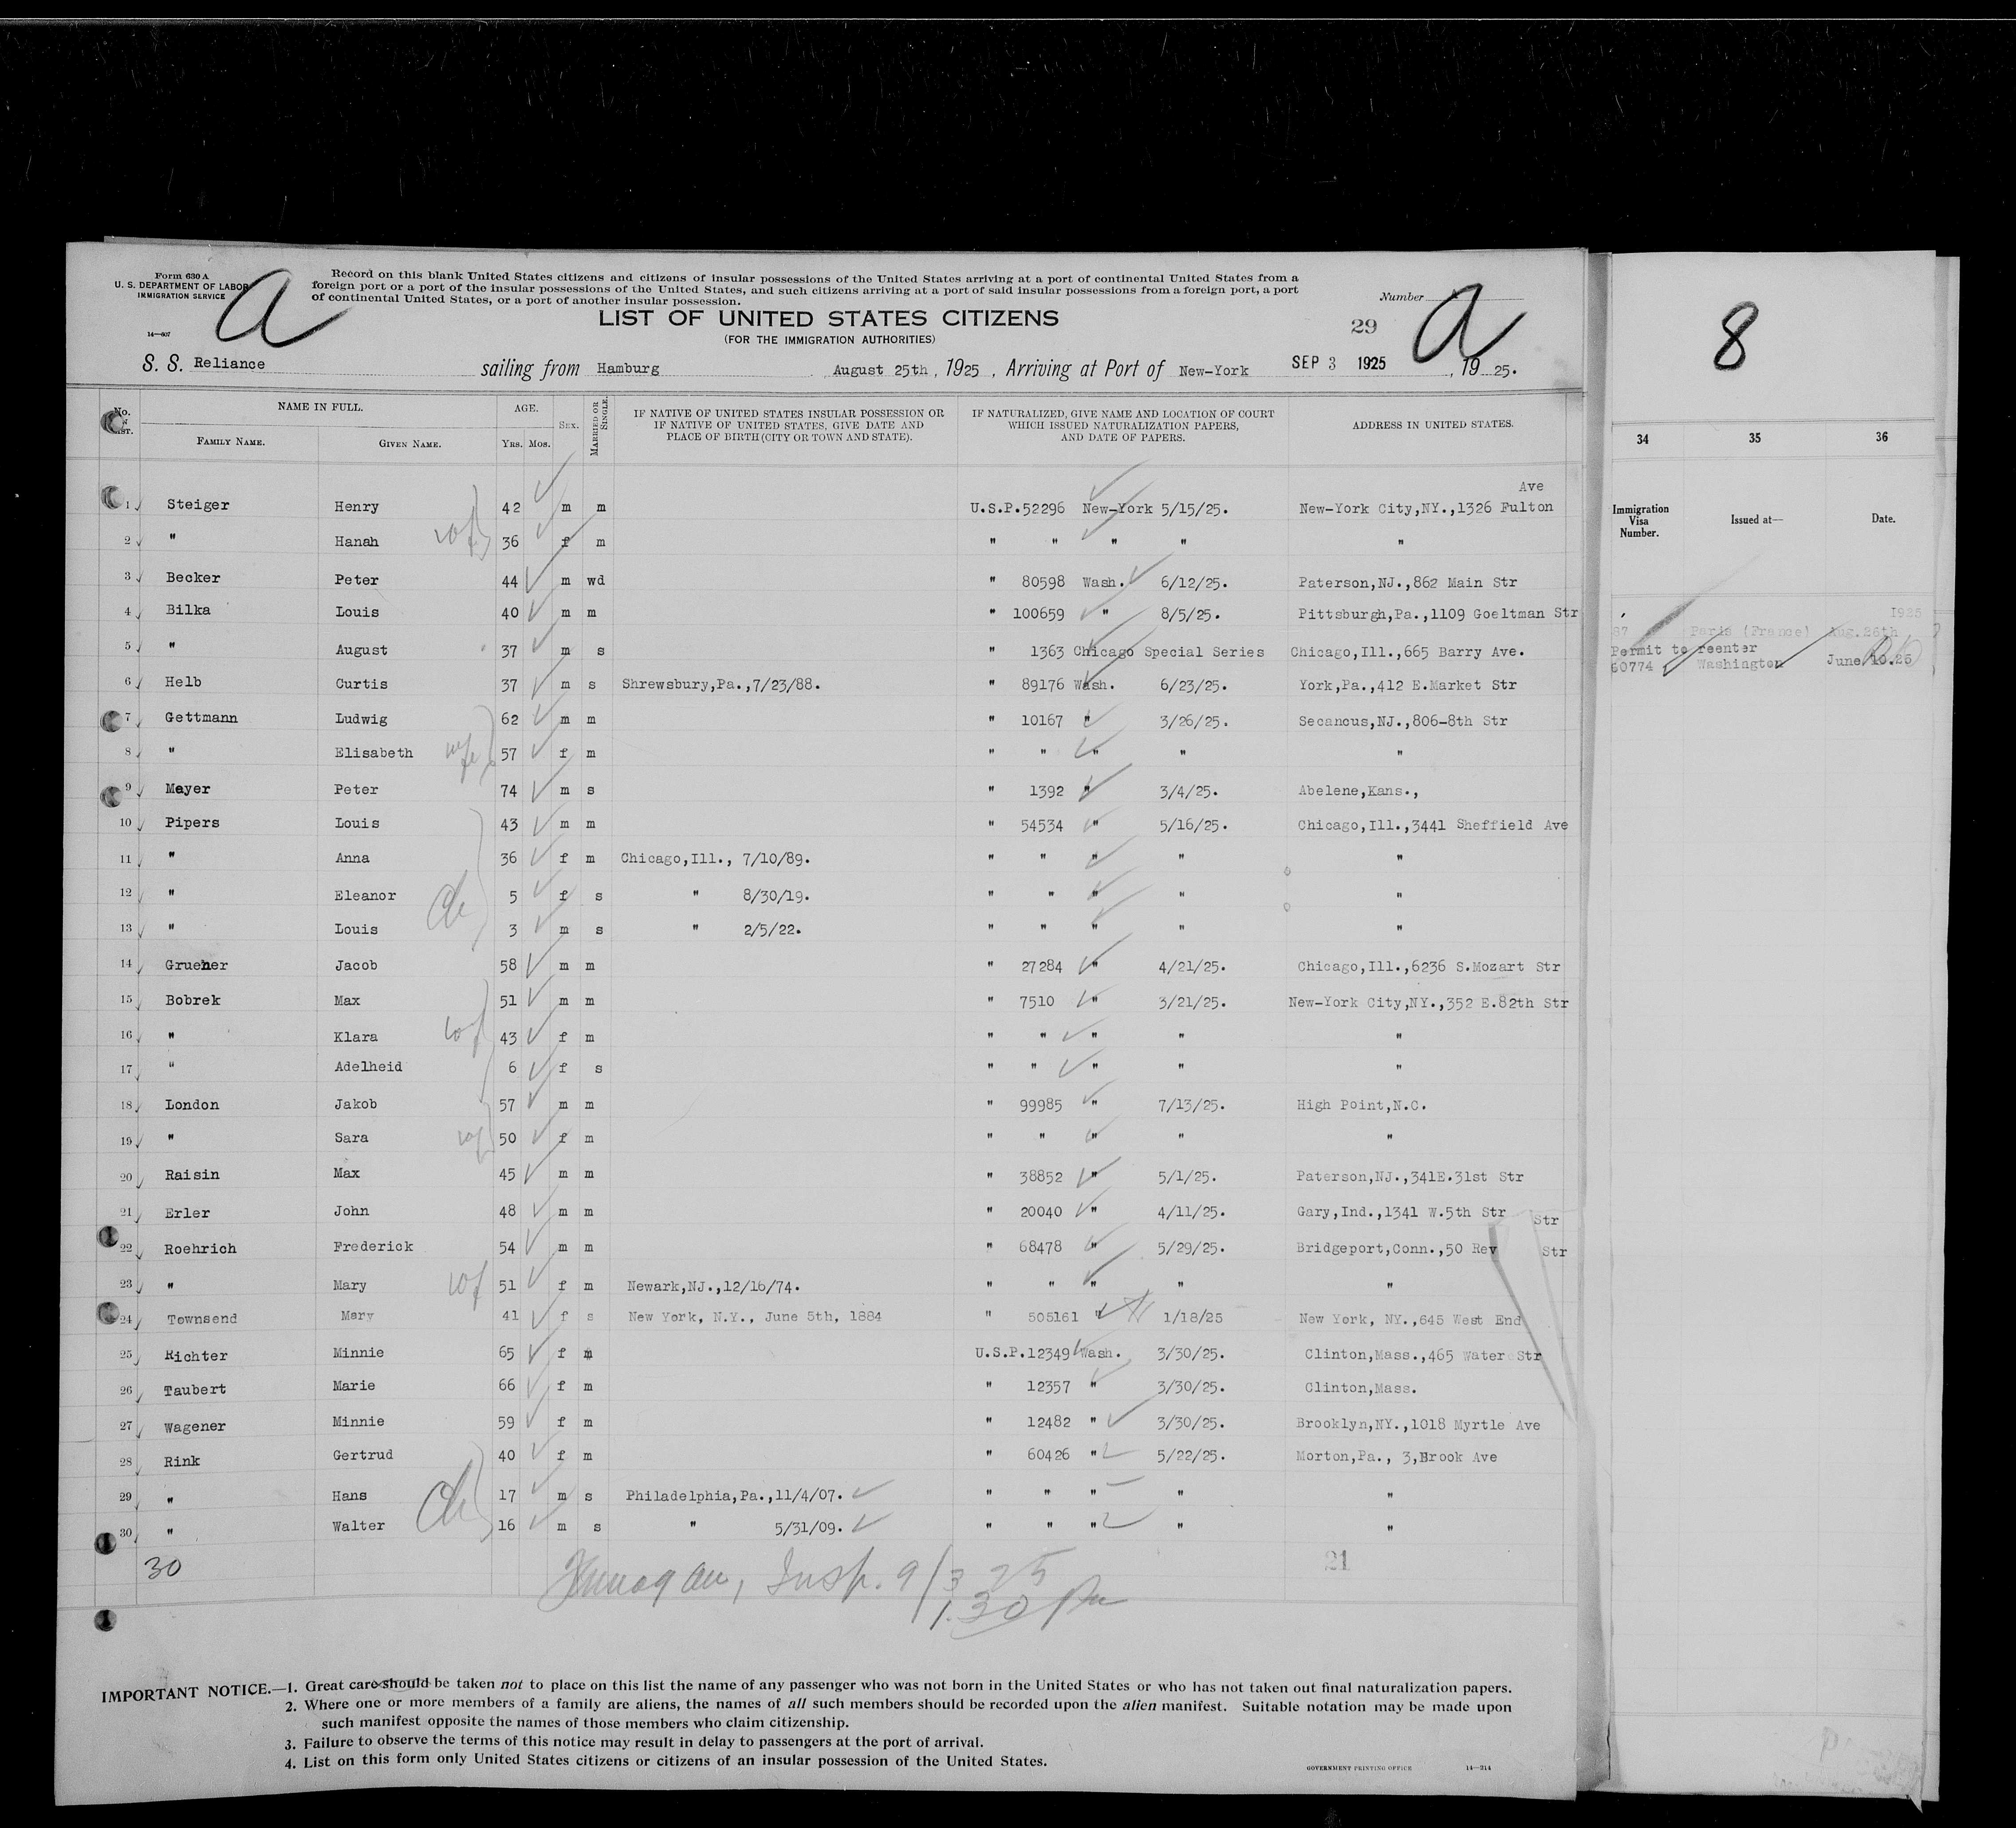 Form 630 A
U. S. DEPARTMENT OF LABOR
IMMIGRATION SERVICE
14—607
a
Record on this blank United States citizens and citizens of insular possessions of the United States arriving at a port of continental United States from a
foreign port or a port of the insular possessions of the United States, and such citizens arriving at a port of said insular possessions from a foreign port, a port
of continental United States, or a port of another insular possession.
Number
LIST OF UNITED STATES CITIZENS
(FOR THE IMMIGRATION AUTHORITIES)
29
a
8
S. S. Reliance sailing from Hamburg August 25th, 1925, Arriving at Port of New-York SEP 3 1925, 19 25.
No. on List.
NAME IN FULL.
FAMILY NAME. GIVEN NAME.
AGE.
YRS. MOS.
SEX.
MARRIED OR SINGLE.
IF NATIVE OF UNITED STATES INSULAR POSSESSION OR
IF NATIVE OF UNITED STATES, GIVE DATE AND
PLACE OF BIRTH (CITY OR TOWN AND STATE).
IF NATURALIZED, GIVE NAME AND LOCATION OF COURT
WHICH ISSUED NATURALIZATION PAPERS,
AND DATE OF PAPERS.
ADDRESS IN UNITED STATES.
34 35 36
Immigration Visa Number. Issued at— Date.
Ave
1 Steiger Henry 42 m m U.S.P.52296 New-York 5/15/25. New-York City,NY.,1326 Fulton
2 " Hanah wf 36 f m " " " " "
3 Becker Peter 44 m wd " 80598 Wash. 6/12/25. Paterson,NJ.,862 Main Str
4 Bilka Louis 40 m m " 100659 " 8/5/25. Pittsburgh,Pa.,1109 Goeltman Str
1925
Paris (France) Aug.26th
5 " August 37 m s " 1363 Chicago Special Series Chicago,Ill.,665 Barry Ave.
Permit to reenter
60774 Washington June 10.25
6 Helb Curtis 37 m s Shrewsbury,Pa.,7/23/88. " 89176 Wash. 6/23/25. York,Pa.,412 E.Market Str
7 Gettmann Ludwig 62 m m " 10167 " 3/26/25. Secancus,NJ.,806-8th Str
8 " Elisabeth wife 57 f m " " " " "
9 Mayer Peter 74 m s " 1392 " 3/4/25. Abelene,Kans.,
10 Pipers Louis 43 m m " 54534 " 5/16/25. Chicago,Ill.,3441 Sheffield Ave
11 " Anna 36 f m Chicago,Ill., 7/10/89. " " " " "
12 " Eleanor ch 5 f s " 8/30/19. " " " " "
13 " Louis 3 m s " 2/5/22. " " " " "
14 Gruener Jacob 58 m m " 27284 " 4/21/25. Chicago,Ill.,6236 S.Mozart Str
15 Bobrek Max 51 m m " 7510 " 3/21/25. New-York City,NY.,352 E.82th Str
16 " Klara wf 43 f m " " " " "
17 " Adelheid 6 f s " " " " "
18 London Jakob 57 m m " 99985 " 7/13/25. High Point,N.C.
19 " Sara wf 50 f m " " " " "
20 Raisin Max 45 m m " 38852 " 5/1/25. Paterson,NJ.,341E.31st Str
21 Erler John 48 m m " 20040 " 4/11/25. Gary,Ind.,1341 W.5th Str
Str
22 Roehrich Frederick 54 m m " 68478 " 5/29/25. Bridgeport,Conn.,50 Rev Str
23 " Mary wf 51 f m Newark,NJ.,12/16/74. " " " " "
24 Townsend Mary 41 f s New York, N.Y., June 5th, 1884 " 505161 " 1/18/25 New York, NY.,645 West End
25 Richter Minnie 65 f m U.S.P.12349 Wash. 3/30/25. Clinton,Mass.,465 Water Str
26 Taubert Marie 66 f m " 12357 " 3/30/25. Clinton,Mass.
27 Wagener Minnie 59 f m " 12482 " 3/30/25. Brooklyn,NY.,1018 Myrtle Ave
28 Rink Gertrud 40 f m " 60426 " 5/22/25. Morton,Pa., 3,Brook Ave
29 " Hans ch 17 m s Philadelphia,Pa.,11/4/07. " " " " "
30 " Walter 16 m s " 5/31/09. " " " " "
30
21
Insp. 9/3 25
1.30 Pm
IMPORTANT NOTICE.—1. Great care should be taken not to place on this list the name of any passenger who was not born in the United States or who has not taken out final naturalization papers.
2. Where one or more members of a family are aliens, the names of all such members should be recorded upon the alien manifest. Suitable notation may be made upon
such manifest opposite the names of those members who claim citizenship.
3. Failure to observe the terms of this notice may result in delay to passengers at the port of arrival.
4. List on this form only United States citizens or citizens of an insular possession of the United States.
GOVERNMENT PRINTING OFFICE 14—314